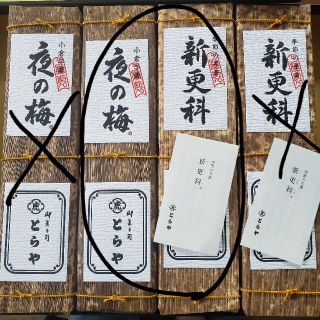 小倉羊羹
夜の梅
小倉羊羹
夜の梅
季節の羊羹
新更科
季節の羊羹
新更科
御菓子司
とらや
御菓子司
とらや
新更科
とらや
新更科
とらや